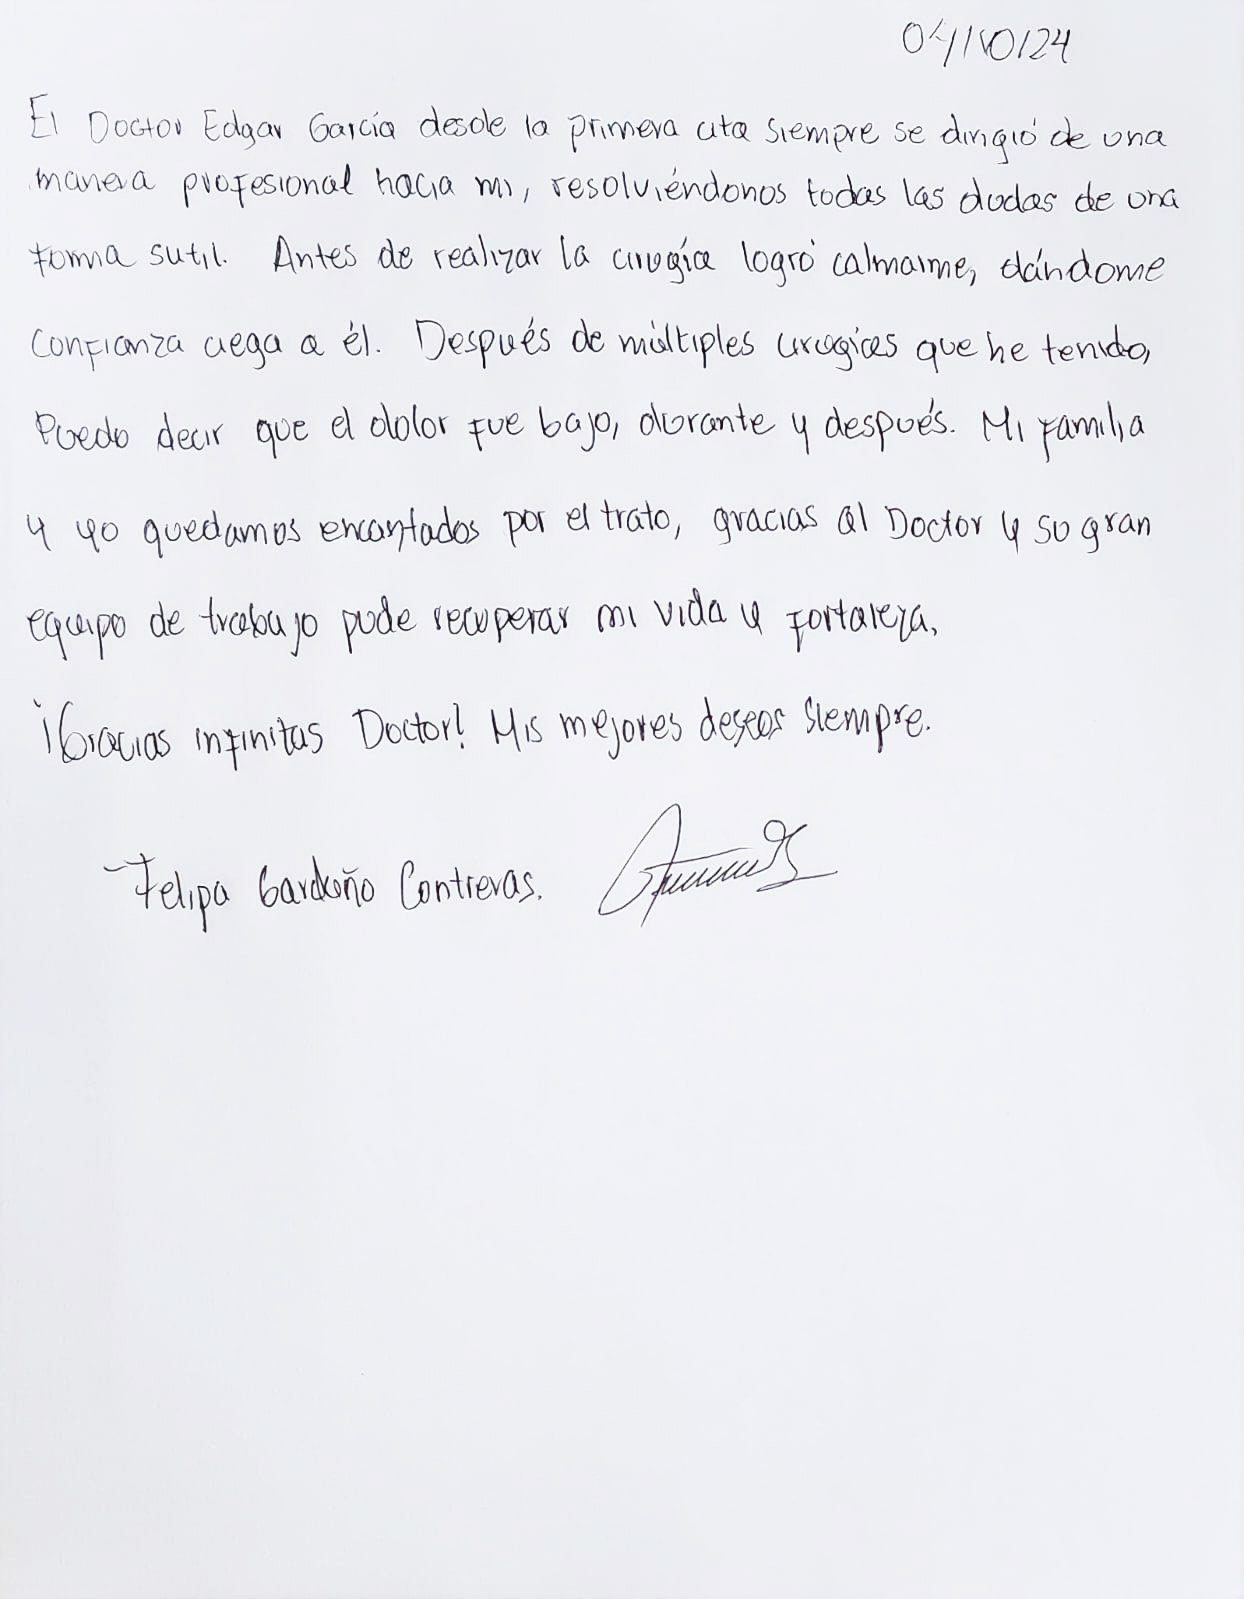 04/10/24
El Doctor Edgar García desde la primera cita siempre se dirigió de una
manera profesional hacia mi, resolviéndonos todas las dudas de una
forma sutil. Antes de realizar la cirugía logró calmarme, dándome
confianza ciega a él. Después de múltiples cirugías que he tenido,
Puedo decir que el dolor fue bajo, durante y después. Mi familia
y yo quedamos encantados por el trato, gracias al Doctor y su gran
equipo de trabajo pude recuperar mi vida y fortaleza.
¡Gracias infinitas Doctor! Mis mejores deseos siempre.
-Felipa Garduño Contreras.